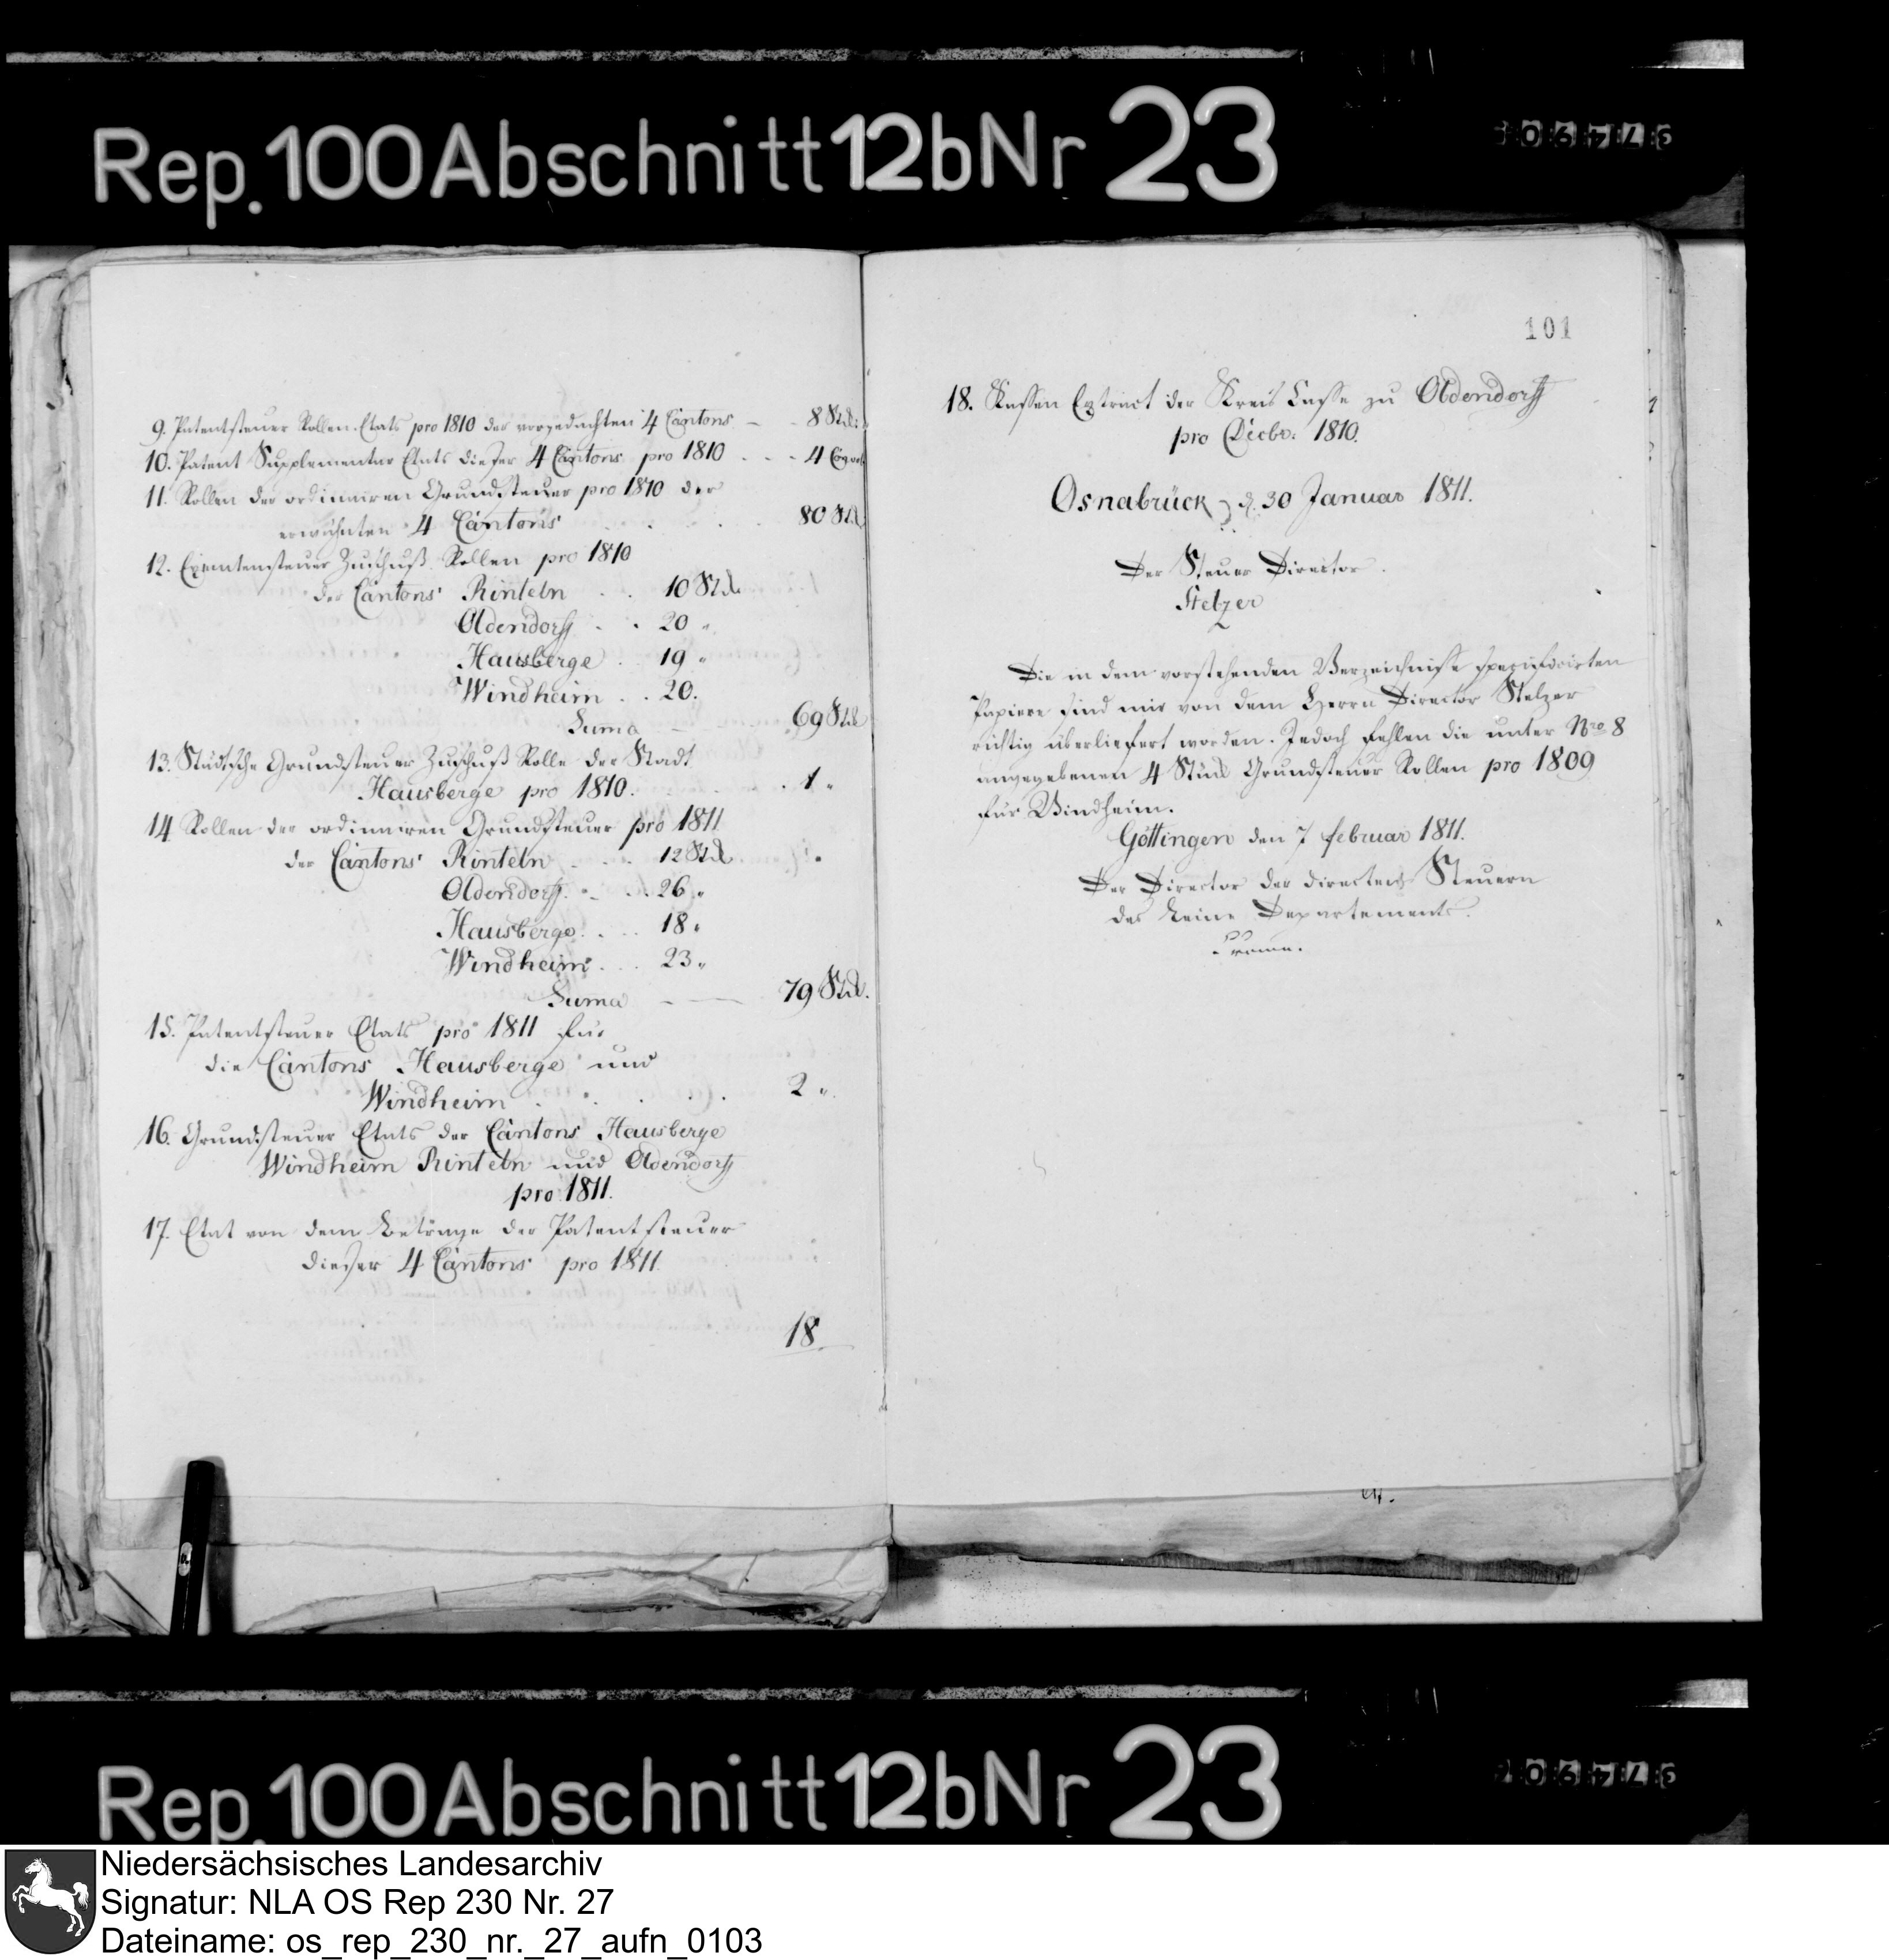 Rep. 100 Abschnitt 12b Nr 23
9. Patentsteuer Rollen Etats pro 1810 der vorgedachten 4 Cantons — 8 Stck.
10. Patent Supplementar Etats dieser 4 Cantons pro 1810 . . . 4
11. Rollen der ordinairen Grundsteuer pro 1810 der
erwähnten 4 Cantons . . . 80 Stck
12. Exemtensteuer Zuschuß Rollen pro 1810
der Cantons Rinteln . . 10 Stck
Oldendorff . . 20 "
Hausberge . . 19 "
Windheim . . 20.
Suma — 69 Stck
13. Städtsche Grundsteuer Zuschuß Rolle der Stadt
Hausberge pro 1810. . . . 1 "
14 Rollen der ordinairen Grundsteuer pro 1811
der Cantons Rinteln . . . 12 Stck
Oldendorff. . . . 26 "
Hausberge . . . 18 "
Windheim . . . 23 "
Suma — — 79 Stck.
15. Patentsteuer Etats pro 1811 für
die Cantons Hausberge und
Windheim . . . . . 2 "
16. Grundsteuer Etats der Cantons Hausberge
Windheim Rinteln und Oldendorff
pro 1811.
17. Etat von dem Betrage der Patentsteuer
dieser 4 Cantons pro 1811.
18.
101
18. Kassen Extract der Kreis Casse zu Oldendorff
pro Decbr. 1810.
Osnabrück d. 30 Januar 1811.
Der Steuer Director.
Stelzer
Die in dem vorstehenden Verzeichnisse specificirten
Papiere sind mir von dem Herrn Director Stelzer
richtig überliefert worden. Jedoch fehlen die unter Nro 8
angegebenen 4 Stück Grundsteuer Rollen pro 1809
für Windheim.
Göttingen den 7 februar 1811.
Der Director der directen Steuern
des Leine Departements.
Rep. 100 Abschnitt 12b Nr 23
Niedersächsisches Landesarchiv
Signatur: NLA OS Rep 230 Nr. 27
Dateiname: os_rep_230_nr._27_aufn_0103